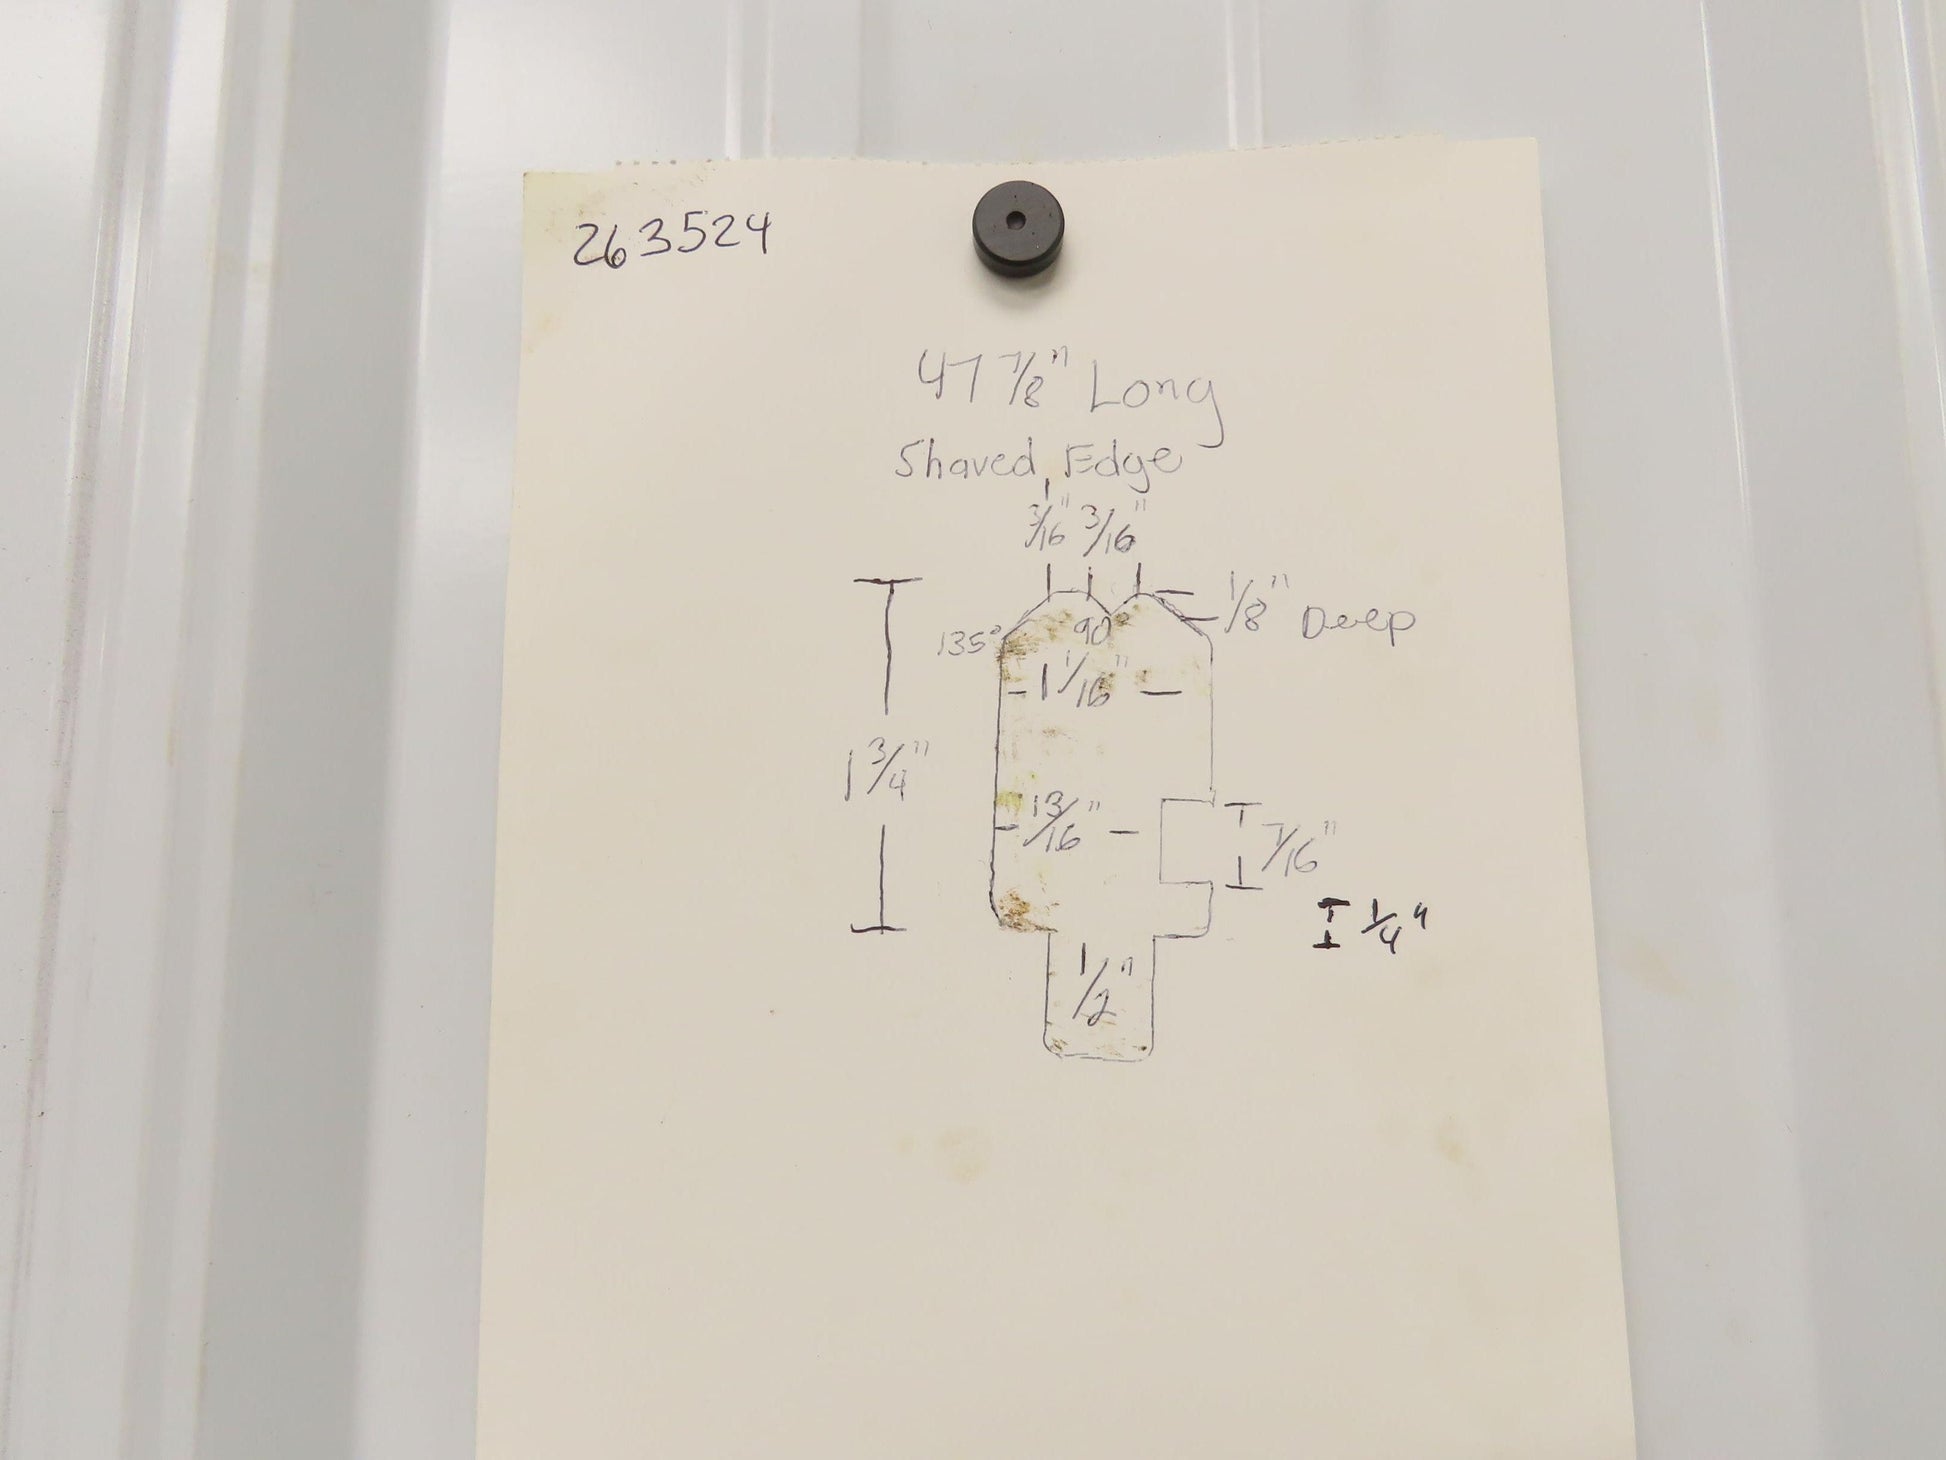 263524
47 7/8" Long
Shaved Edge
3/16" 3/16"
1/8" Deep
135° 90°
1 1/16"
1 3/4"
13/16"
7/16"
1/4"
1/2"